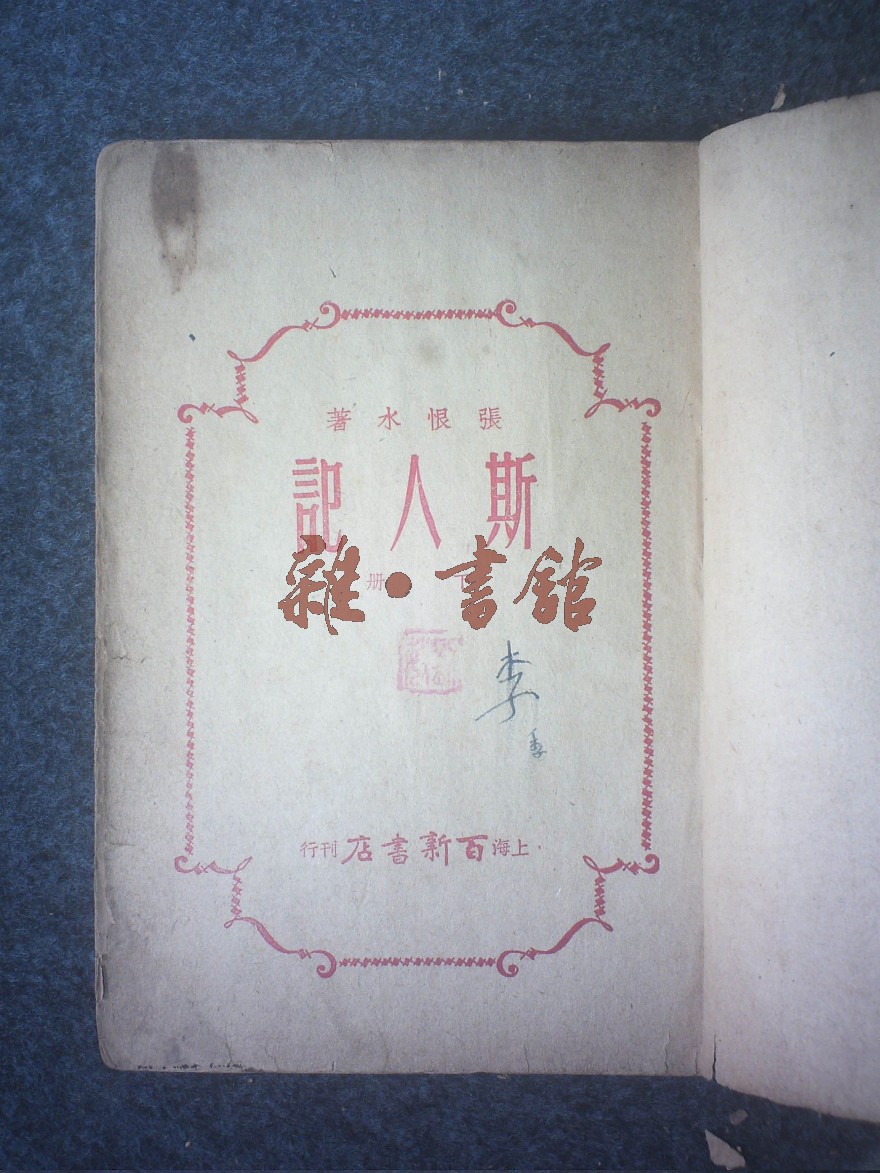 張恨水著
斯人記
下册
雜·書館
李
上海百新書店刊行